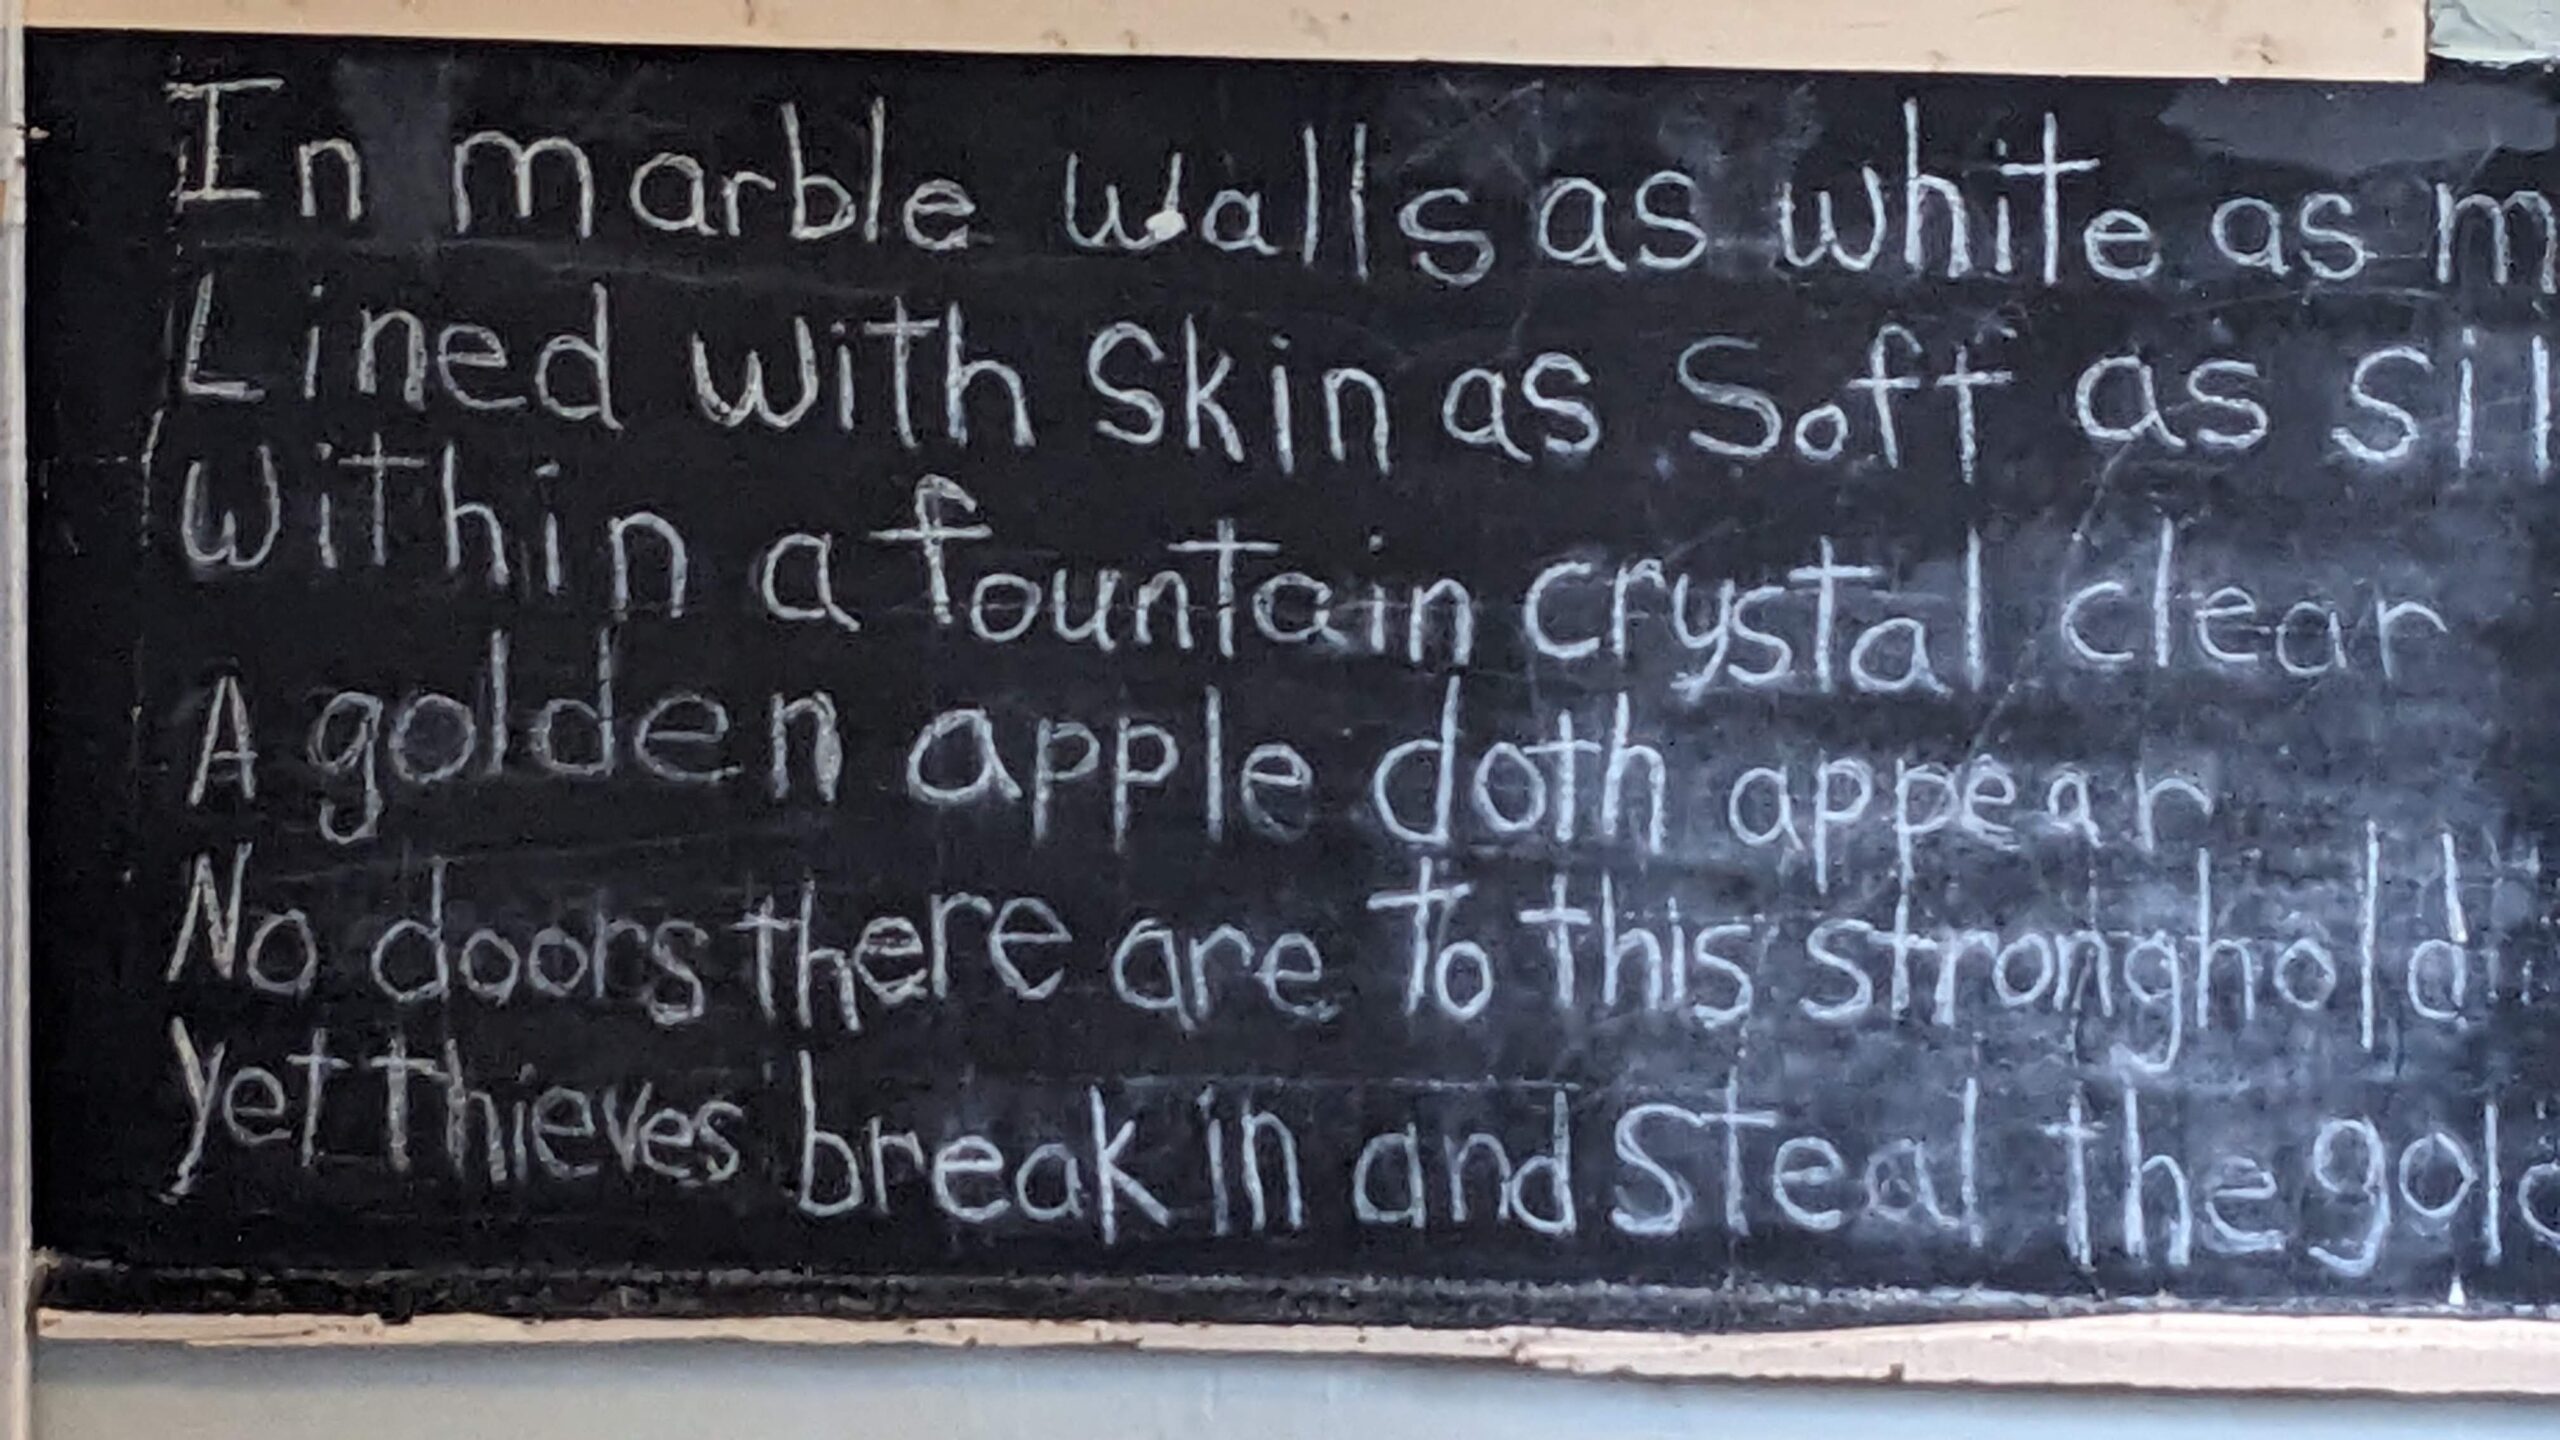 In marble walls as white as m
Lined with Skin as Soft as Sil
Within a fountain crystal clear
A golden apple doth appear
No doors there are To this stronghold
Yet thieves break in and Steal the gold